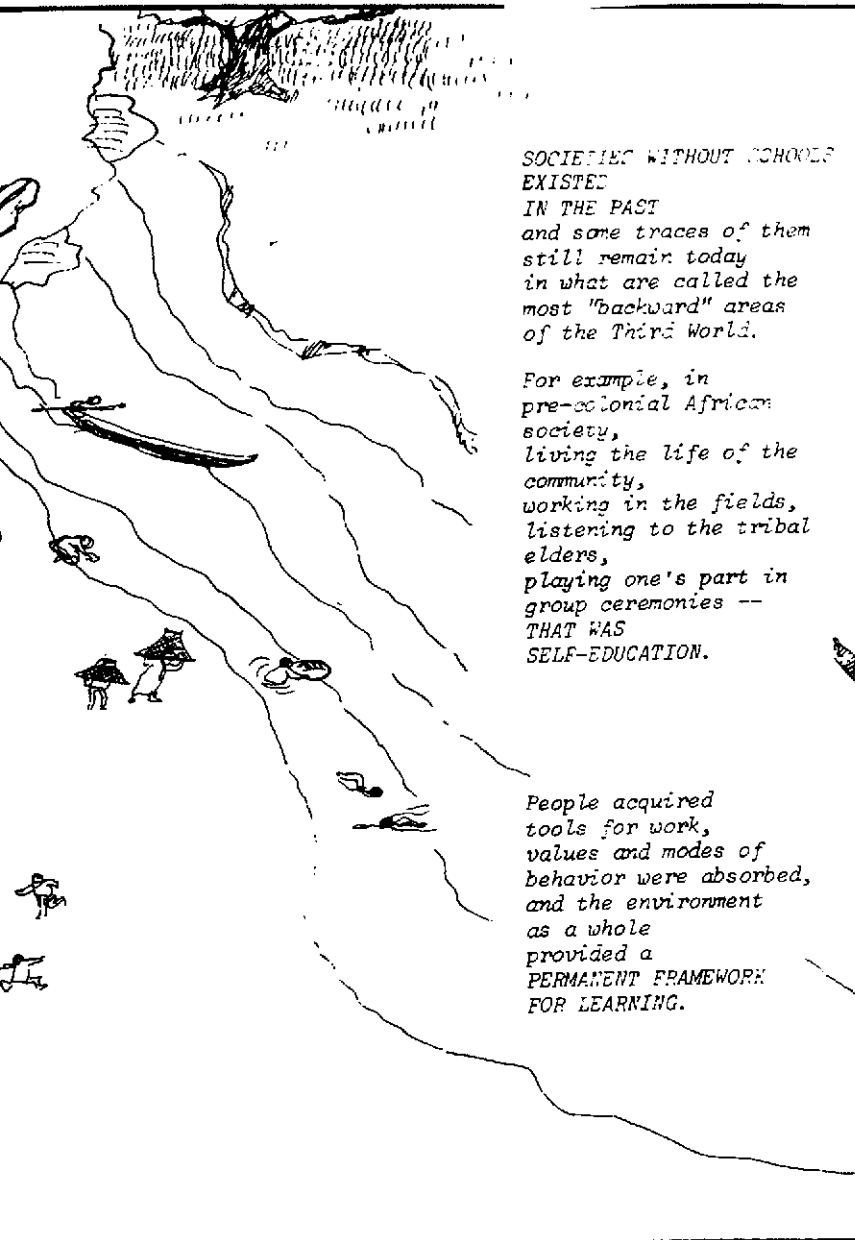 SOCIETIES WITHOUT SCHOOLS
EXISTED
IN THE PAST
and some traces of them
still remain today
in what are called the
most "backward" areas
of the Third World.
For example, in
pre-colonial African
society,
living the life of the
community,
working in the fields,
listening to the tribal
elders,
playing one's part in
group ceremonies --
THAT WAS
SELF-EDUCATION.
People acquired
tools for work,
values and modes of
behavior were absorbed,
and the environment
as a whole
provided a
PERMANENT FRAMEWORK
FOR LEARNING.